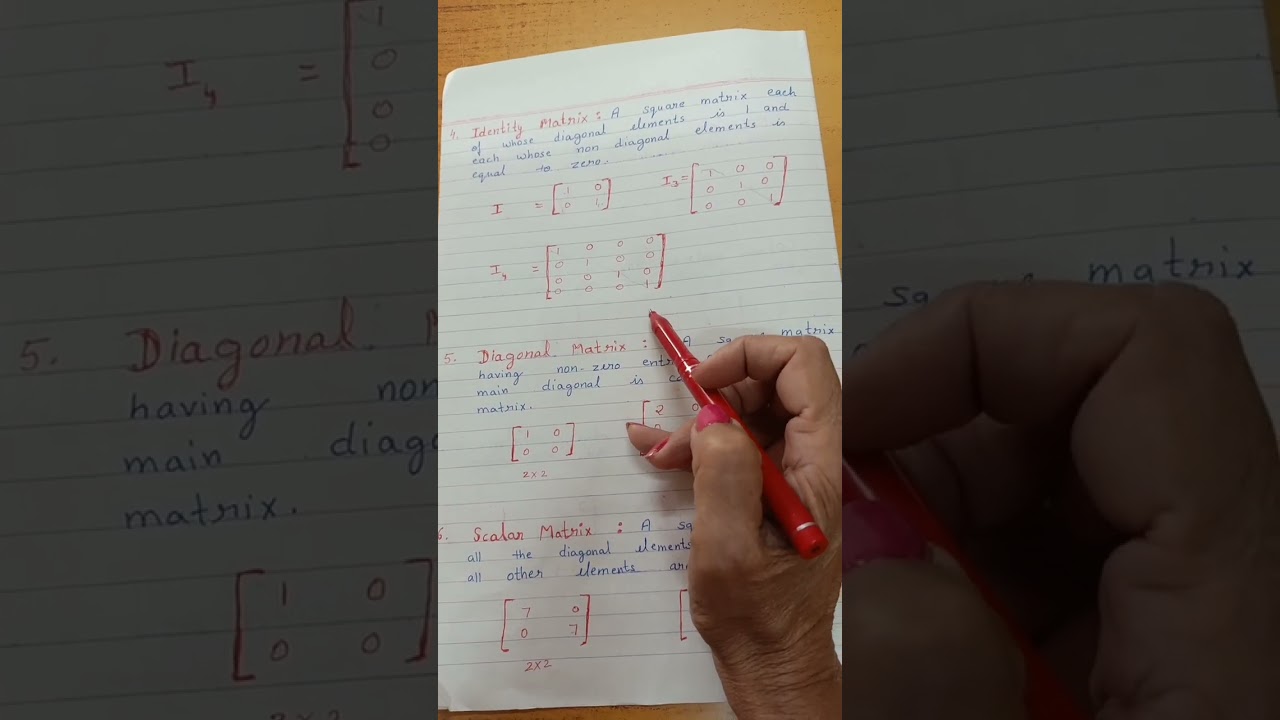 4. Identity Matrix : A square matrix each
of whose diagonal elements is 1 and
each whose non diagonal elements is
equal to zero.
I = [ 1 0
0 1 ]
I3 = [ 1 0 0
0 1 0
0 0 1 ]
I4 = [ 1 0 0 0
0 1 0 0
0 0 1 0
0 0 0 1 ]
5. Diagonal Matrix : A matrix
having non-zero
main diagonal is
matrix.
[ 1 0
0 0 ]
2×2
[ 2 0
6. Scalar Matrix : A
all the diagonal elements
all other elements
[ 7 0
0 7 ]
2×2
[
I4 = [ 1
0
0
0
5. Diagonal
having
main
matrix.
[ 1 0
0 0 ]
2×2
matrix